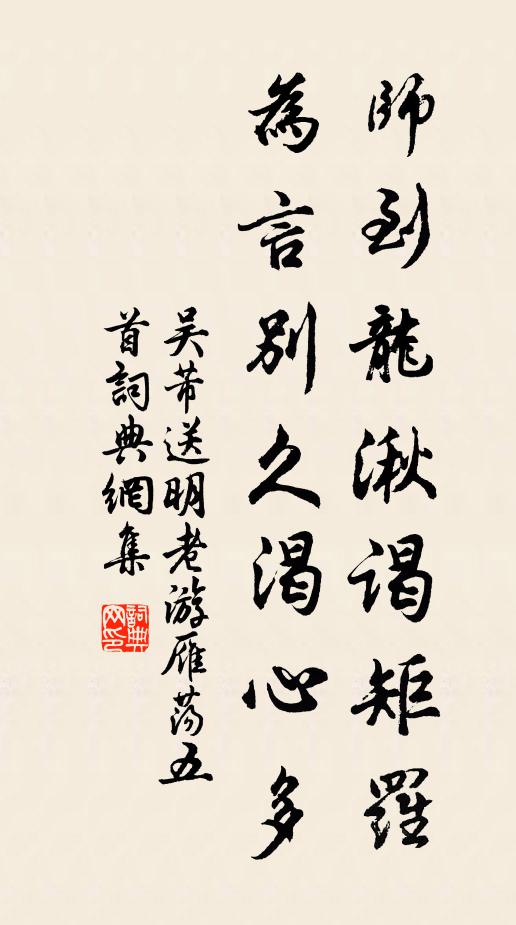 師到龍湫謁矩羅
為言別久渴心多
吴芾送明老游雁蕩五
首詞典網集
詞典網印